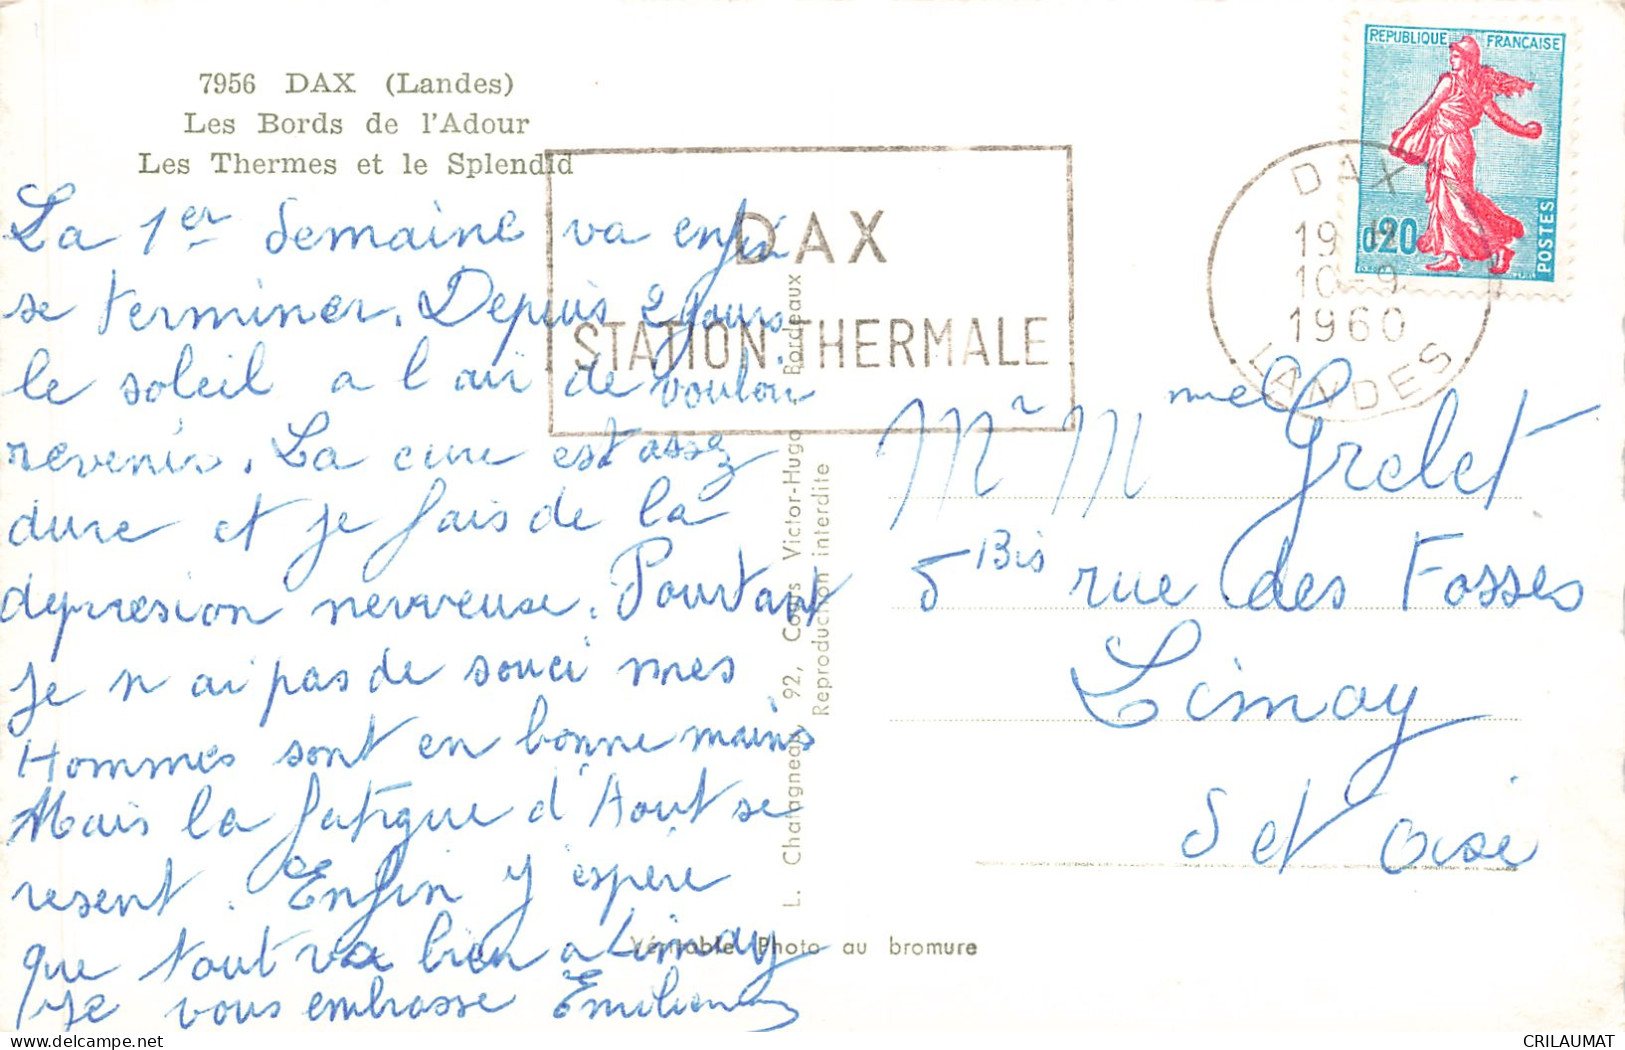 7956 DAX (Landes)
Les Bords de l'Adour
Les Thermes et le Splendid
La 1er semaine va enfin
se terminer. Depuis 2 jours
le soleil a l air de vouloir
revenir. La cure est assez
dure et je fais de la
depresion nerveuse. Pourtant
je n ai pas de souci mes
Hommes sont en bonne mains
Mais la fatigue d'Aout se
resent. Enfin j'espère
que tout va bien a Limay
Je vous embrasse Emilienne
DAX
STATION THERMALE
L. Chatagneau, 92, Cours Victor-Hugo, Bordeaux
Reproduction interdite
Véritable Photo au bromure
REPUBLIQUE FRANÇAISE
0,20
POSTES
DAX
19 H
10-9
1960
LANDES
Mr Mmel Grelet
5 Bis rue des Fosses
Limay
S et Oise
CRILAUMAT